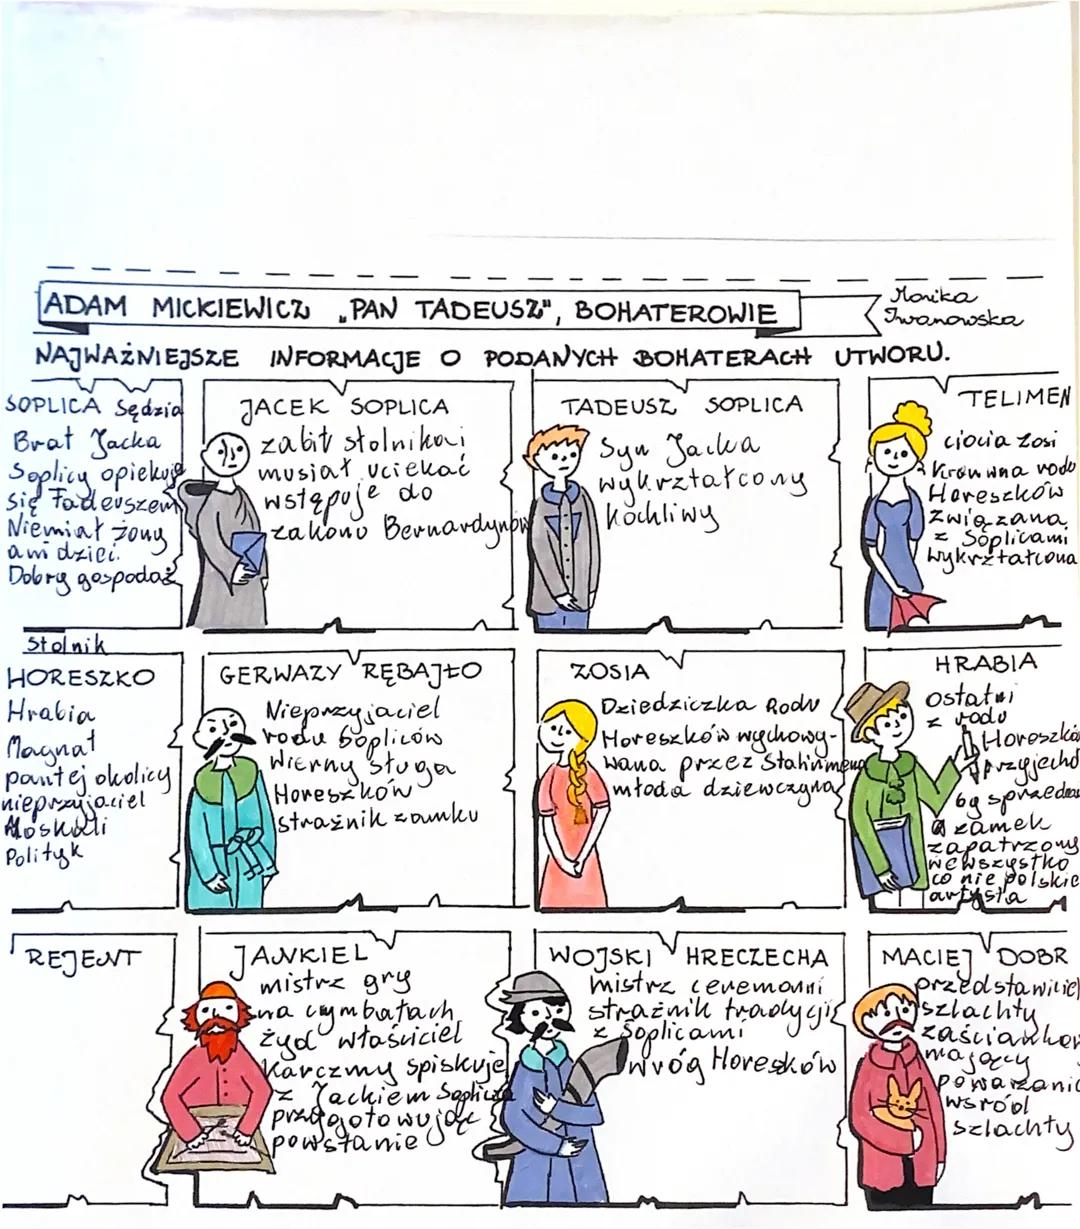 ADAM MICKIEWICZ „PAN TADEUSZ", BOHATEROWIE
Monika
Iwanowska
NAJWAŻNIEJSZE INFORMACJE O PODANYCH BOHATERACH UTWORU.
SOPLICA Sędzia
Brat Jacka
Soplicy opiekuje
się Tadeuszem
Niemiał żony
ani dzieci.
Dobry gospodaż
JACEK SOPLICA
zabił stolnika i
musiał uciekać
wstępuje do
zakonu Bernardynów
TADEUSZ SOPLICA
Syn Jacka
wykrztałcony
kochliwy
TELIMEN
ciocia Zosi
krewna rodu
Horeszków
związana
z Soplicami
wykrztałcona
Stolnik
HORESZKO
Hrabia
Magnat
pan tej okolicy
nieprzyjaciel
Moskali
Polityk
GERWAZY RĘBAJŁO
Nieprzyjaciel
rodu Sopliców
wierny sługa
Horeszków
strażnik zamku
ZOSIA
Dziedziczka Rodu
Horeszków wychowy-
wana przez
młoda dziewczyna
HRABIA
ostatni
z rodu
Horeszkó
przyjecha
by sprzedać
zamek
zapatrzony
we wszystko
co nie polskie
artysta
REJENT
JANKIEL
mistrz gry
na cymbałach
żyd właściciel
karczmy spiskuje
z Jackiem Soplicą
przygotowując
powstanie
WOJSKI HRECZECHA
mistrz ceremonni
strażnik tradycji
z Soplicami
wróg Horeszków
MACIEJ DOBR
przedstawiciel
szlachty
zaściankow
mający
poważanie
wśród
szlachty